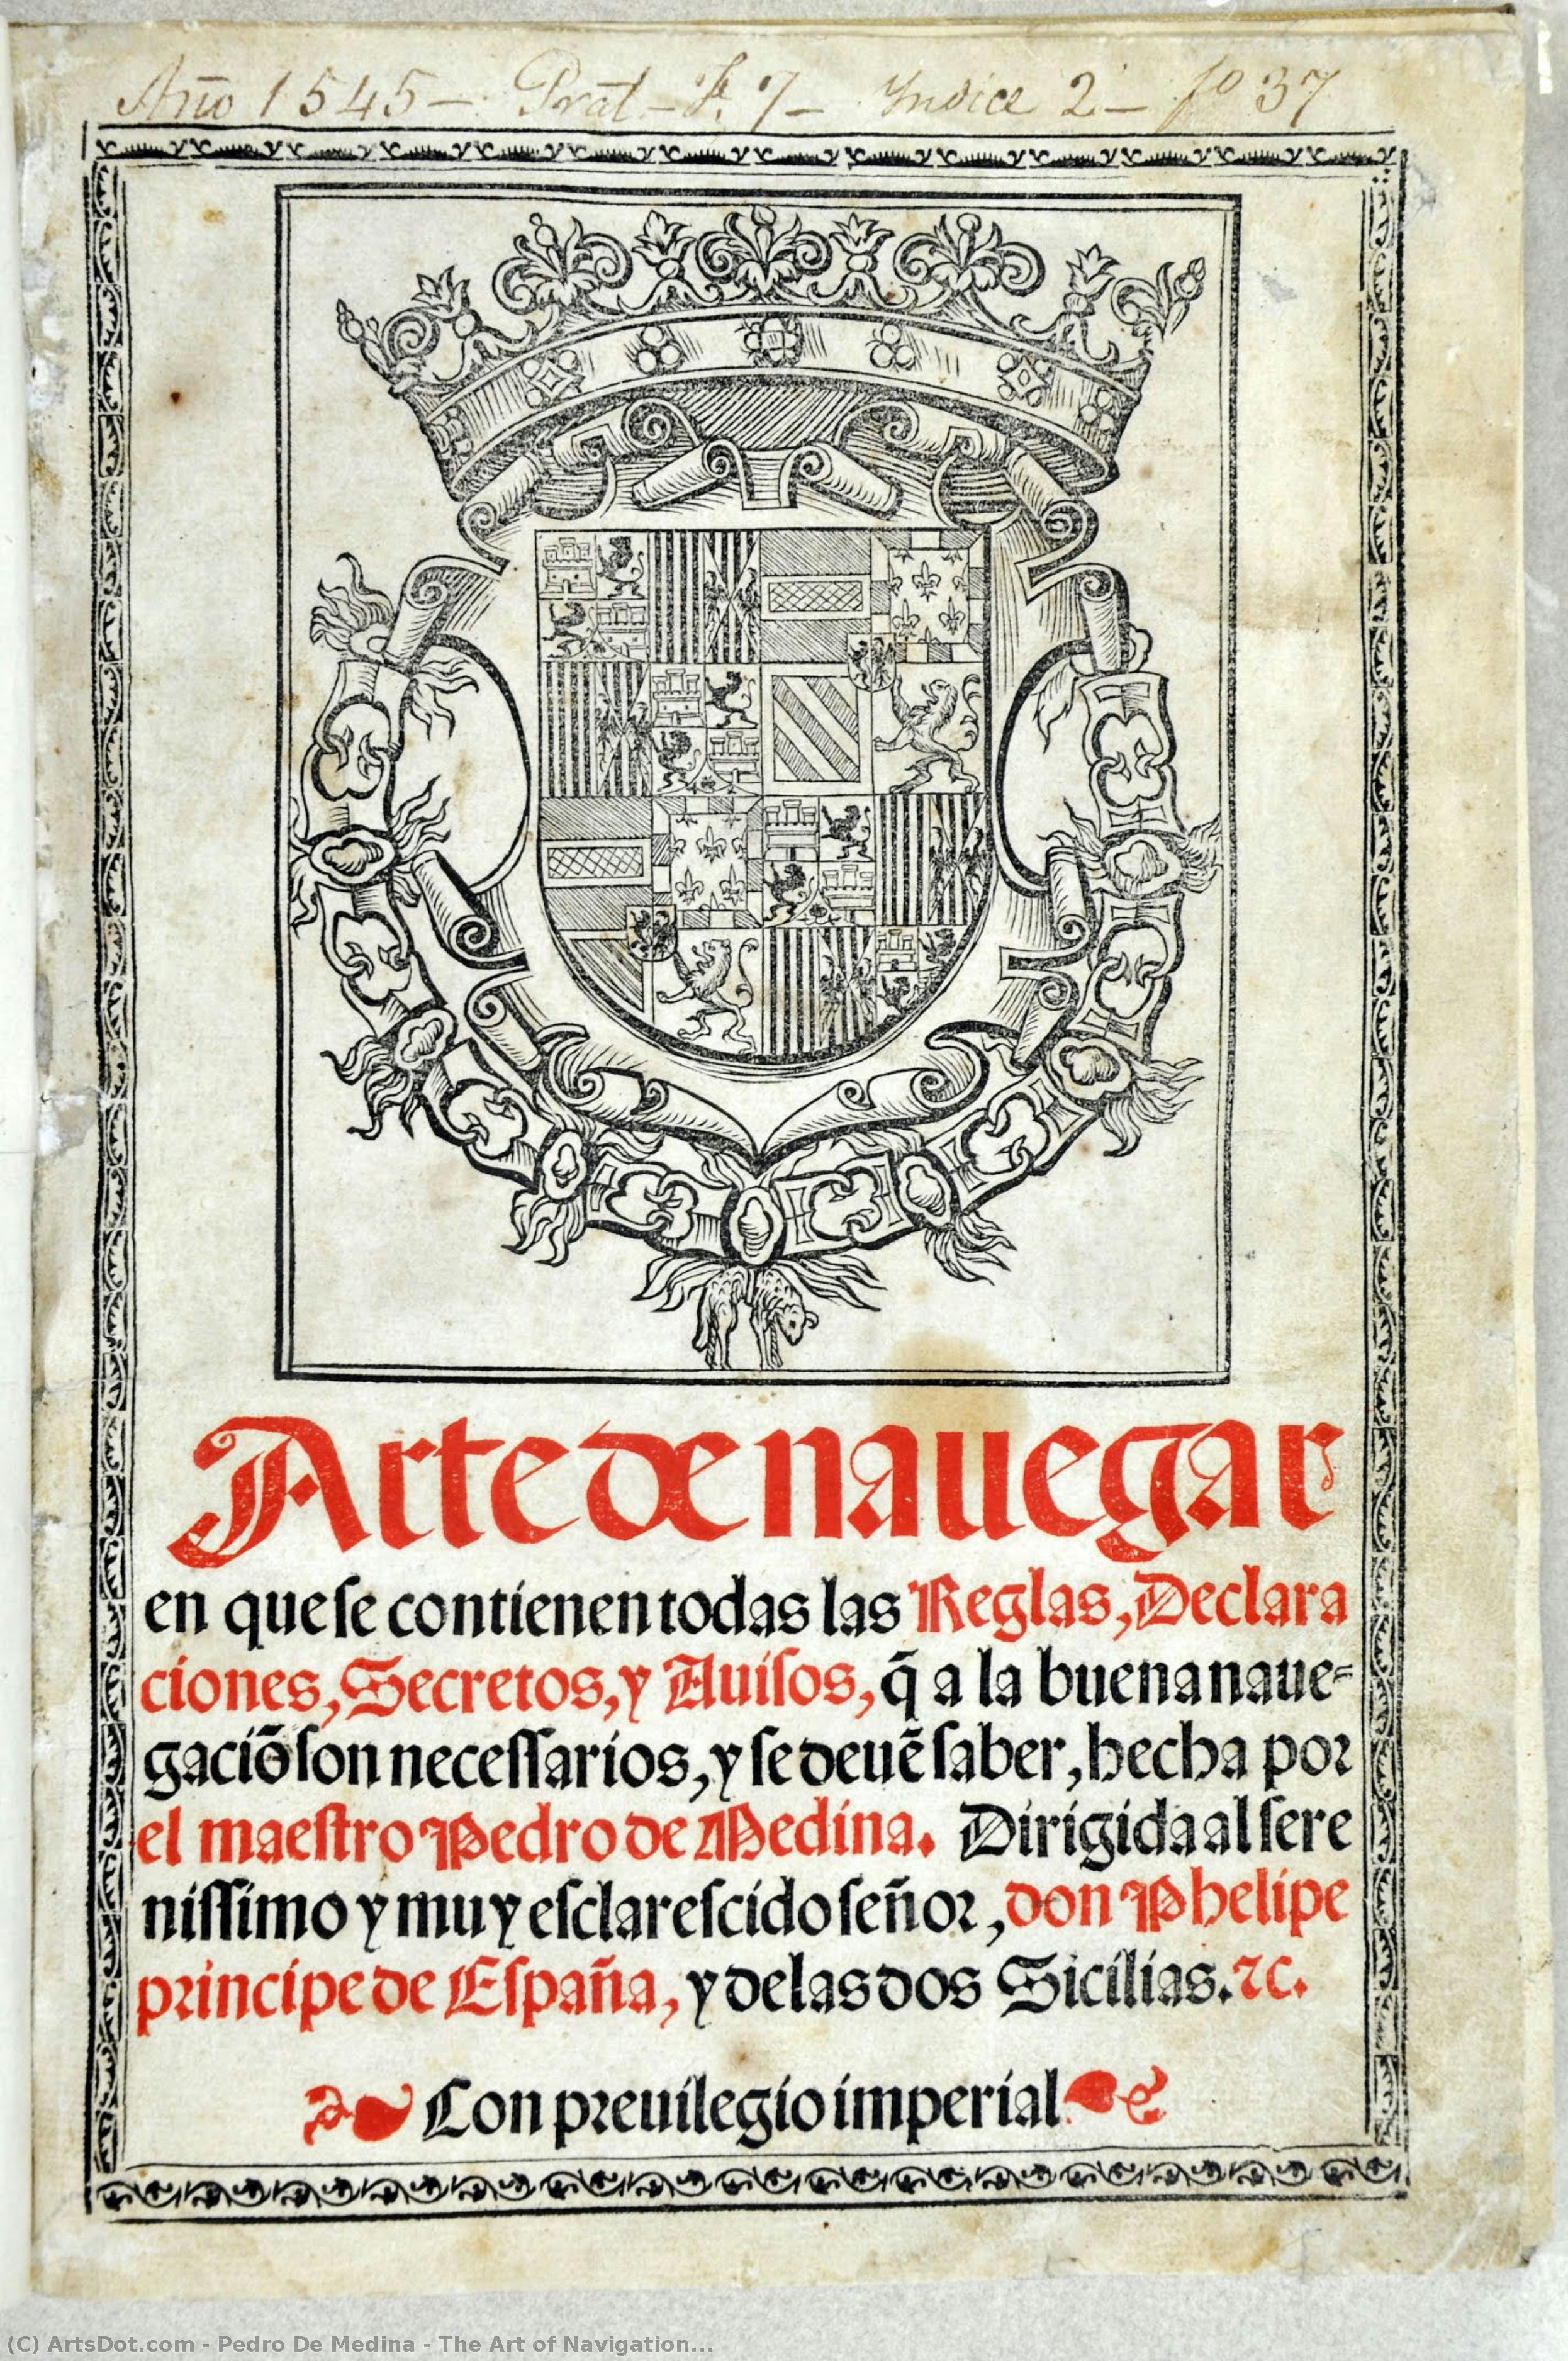 Año 1545 - Prat - E. 7 - Yndice 2º - fo 37
Arte de nauegar
en que se contienen todas las Reglas, Declara
ciones, Secretos, y Auisos, q̃ a la buena naue-
gaciõ son necessarios, y se deuẽ saber, hecha por
el maestro Pedro de Medina. Dirigida al sere
nissimo y muy esclarescido señor, don Phelipe
principe de España, y delas dos Sicilias. ⁊c.
Con preuilegio imperial
(C) ArtsDot.com - Pedro De Medina - The Art of Navigation...